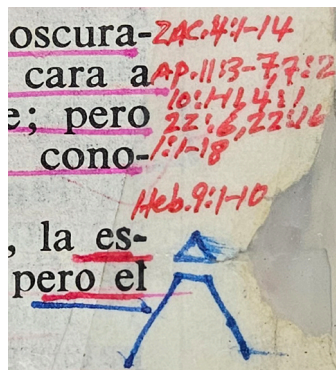 oscura-
cara a
e; pero
cono-
, la es-
pero el
ZAC.4:1-14
AP.11:3-7,7:2
10:1-11,4:1
22:6,22:16
1:1-18
Heb.9:1-10